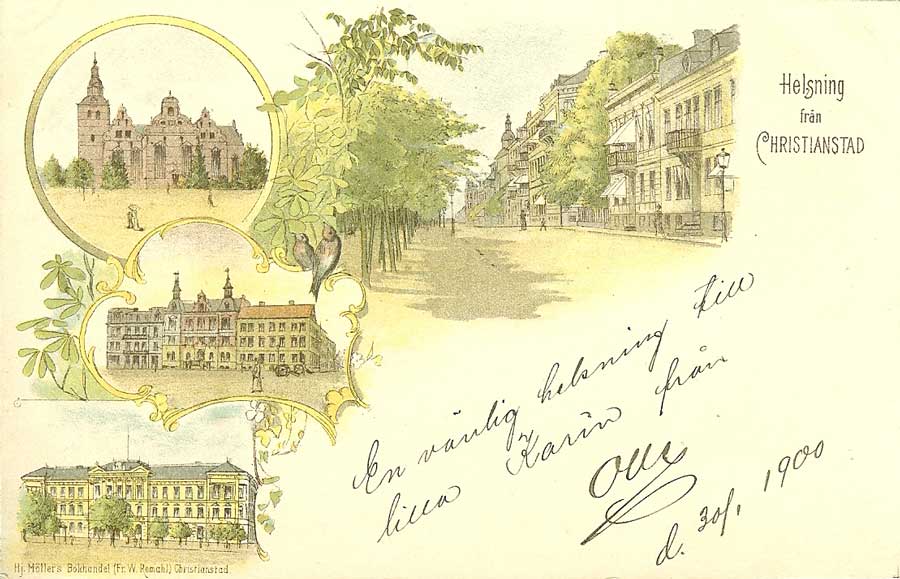 Helsning
från
CHRISTIANSTAD
En vänlig helsning till
lilla Karin från
Olle
d. 30/1, 1900
Hj. Möller's Bokhandel (Fr. W. Remahl) Christianstad.